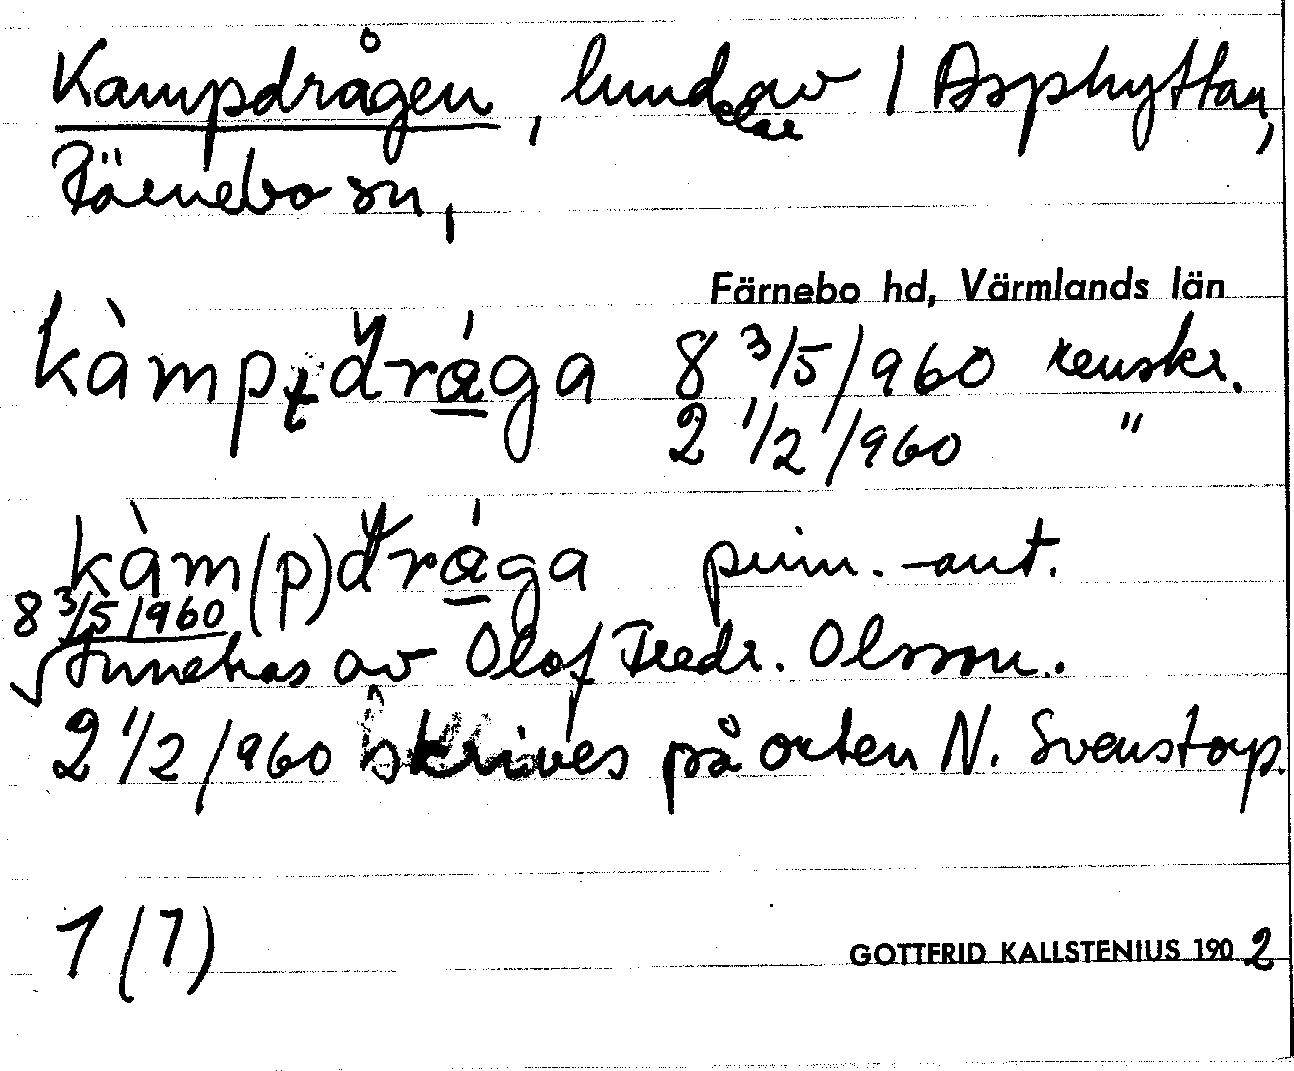 Kampdrågen, lund av 1 Asphyttan,
Färnebo sn,
Färnebo hd, Värmlands län
kàmpdrága 8 3/5/960 renskr.
2 1/2/960 "
kàm(p)drága prim.-ant.
8 3/5/960
Innehas av Olof Fredr. Olsson.
2 1/2/960 skrives på orten N. Svenstorp.
1 (1)
GOTTFRID KALLSTENIUS 1902